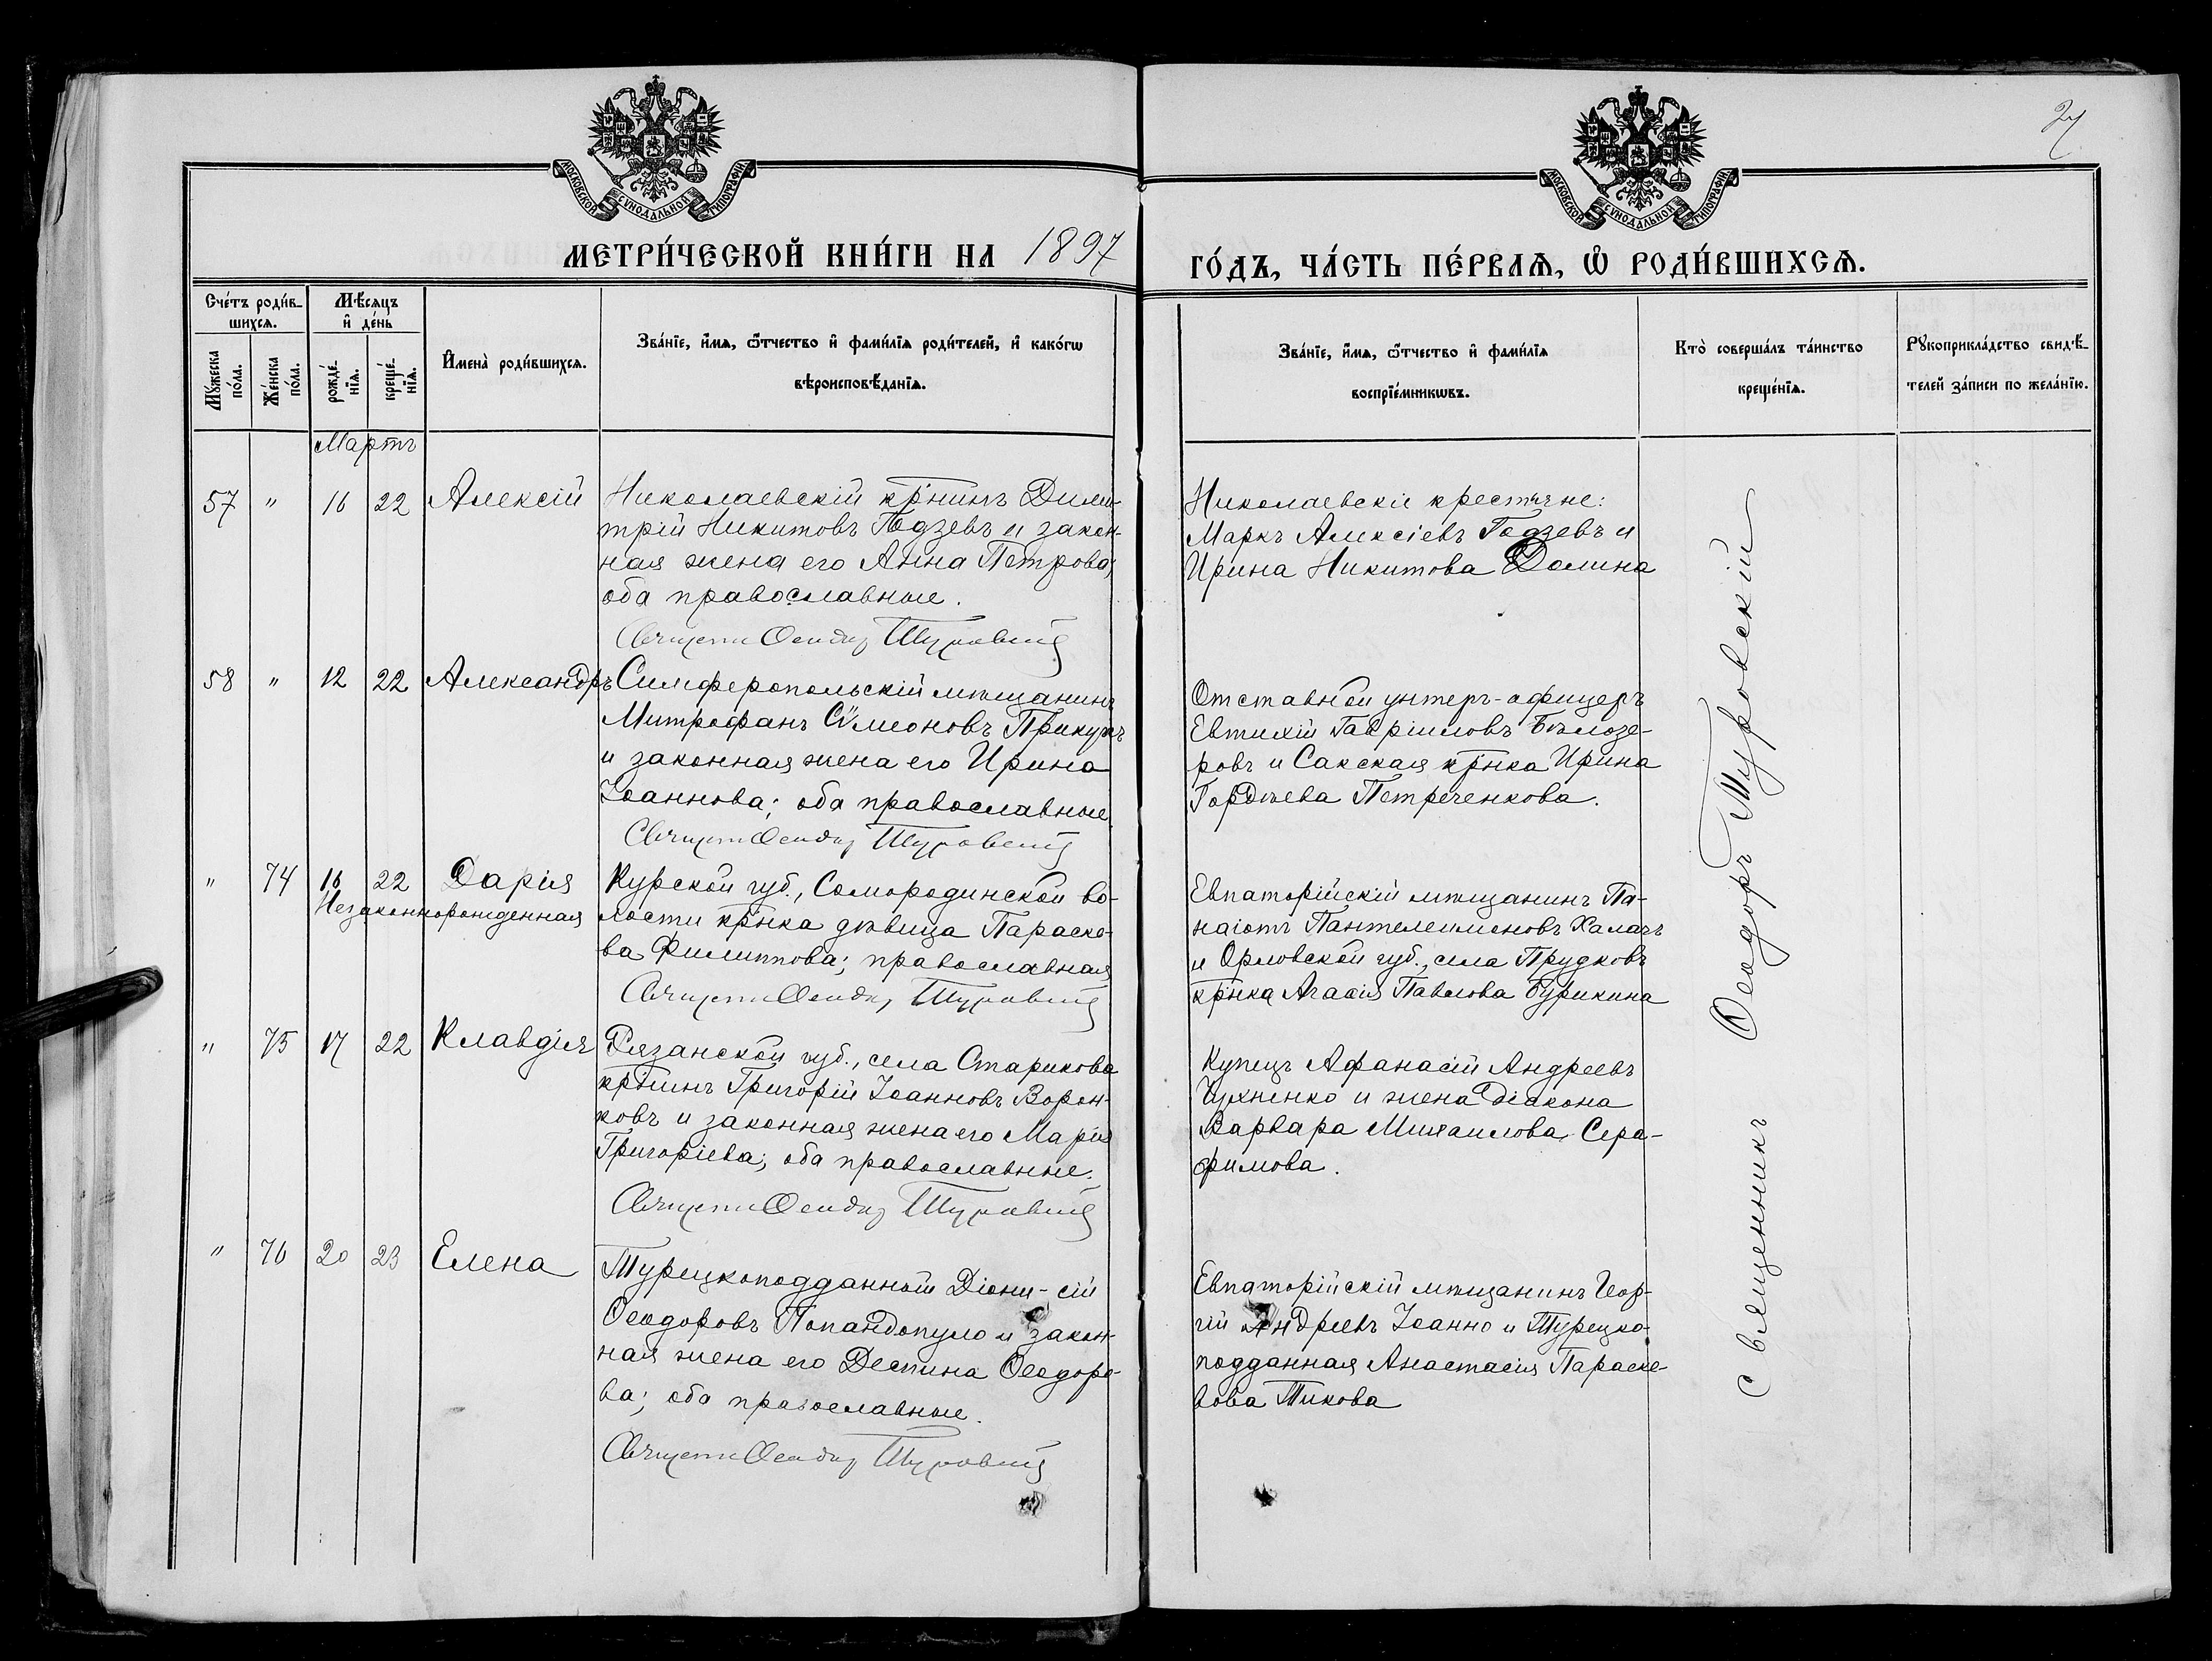 27
МОСКОВСКОЙ СУНОДАЛЬНОЙ ТИПОГРАФІИ
МОСКОВСКОЙ СУНОДАЛЬНОЙ ТИПОГРАФІИ
МЕТРИ́ЧЕСКОЙ КНИ́ГИ НА 1897
ГО́ДЪ, ЧА́СТЬ ПЕ́РВАѦ, Ѽ РОДИ́ВШИХСѦ.
Сче́тъ роди́в-
шихсѧ.
Мѣ́сяцъ
и҆ де́нь
Мꙋ́жеска
по́ла.
Же́нска
по́ла.
рожде́-
нїѧ.
креще́-
нїѧ.
И҆мена̀ роди́вшихсѧ.
Зва́нїе, и҆́мѧ, ѻ҆́тчество и҆ фами́лїѧ роди́телей, и҆ како́гѡ
вѣроисповѣ́данїѧ.
Зва́нїе, и҆́мѧ, ѻ҆́тчество и҆ фами́лїѧ
воспрїе́мникѡвъ.
Кто̀ соверша́лъ та́инство
креще́нїѧ.
Рꙋкоприкла́дство свидѣ́-
телей за́писи по жела́нїю.
Мартъ
57 " 16 22 Алексій
Николаевскій кр҃нинъ Дими-
трій Никитовъ Годзевъ и закон-
ная жена его Анна Петрова;
оба православные.
Священ Ѳеодор Туровскій
Николаевскіе крестьяне:
Маркъ Алексіевъ Годзевъ и
Ирина Никитова Долина
58 " 12 22 Александръ
Симферопольскій мѣщанинъ
Митрофанъ Сѷмеоновъ
и законная жена его Ирина
Іоаннова; оба православные.
Священ Ѳеодор Туровскій
Отставной унтеръ-офицеръ
Евтихій Гавріиловъ Бѣлозе-
ровъ и Сакская кр҃нка Ирина
Гордѣева Петреченкова.
" 74 16 22 Дарія
Незаконнорожденная
Курской губ., Сомородинской во-
лости кр҃нка дѣвица Параске-
ва Филиппова; православная
Священ Ѳеодор Туровскій
Евпаторійскій мѣщанинъ Па-
наіотъ Пантелеимоновъ Халачъ
и Орловской губ., села Прудковъ
кр҃нка Агаѳія Павлова Бурикина
" 75 17 22 Клавдія
Рязанской губ., села Старикова
кр҃нинъ Григорій Іоанновъ Ворон-
ковъ и законная жена его Марія
Григоріева; оба православные.
Священ Ѳеодор Туровскій
Купецъ Афанасій Андреевъ
и жена діакона
Варвара Михаилова Сера-
фимова.
" 76 20 23 Елена
Турецкоподданный Діони-сій
Ѳеодоровъ Попандопуло и закон-
ная жена его Деспина Ѳеодоро-
ва; оба православные.
Священ Ѳеодор Туровскій
Евпаторійскій мѣщанинъ Геор-
гій Андреевъ Іоанно и Турецко-
подданная Анастасія Параске-
вова Тикова
Священникъ Ѳеодоръ Туровскій